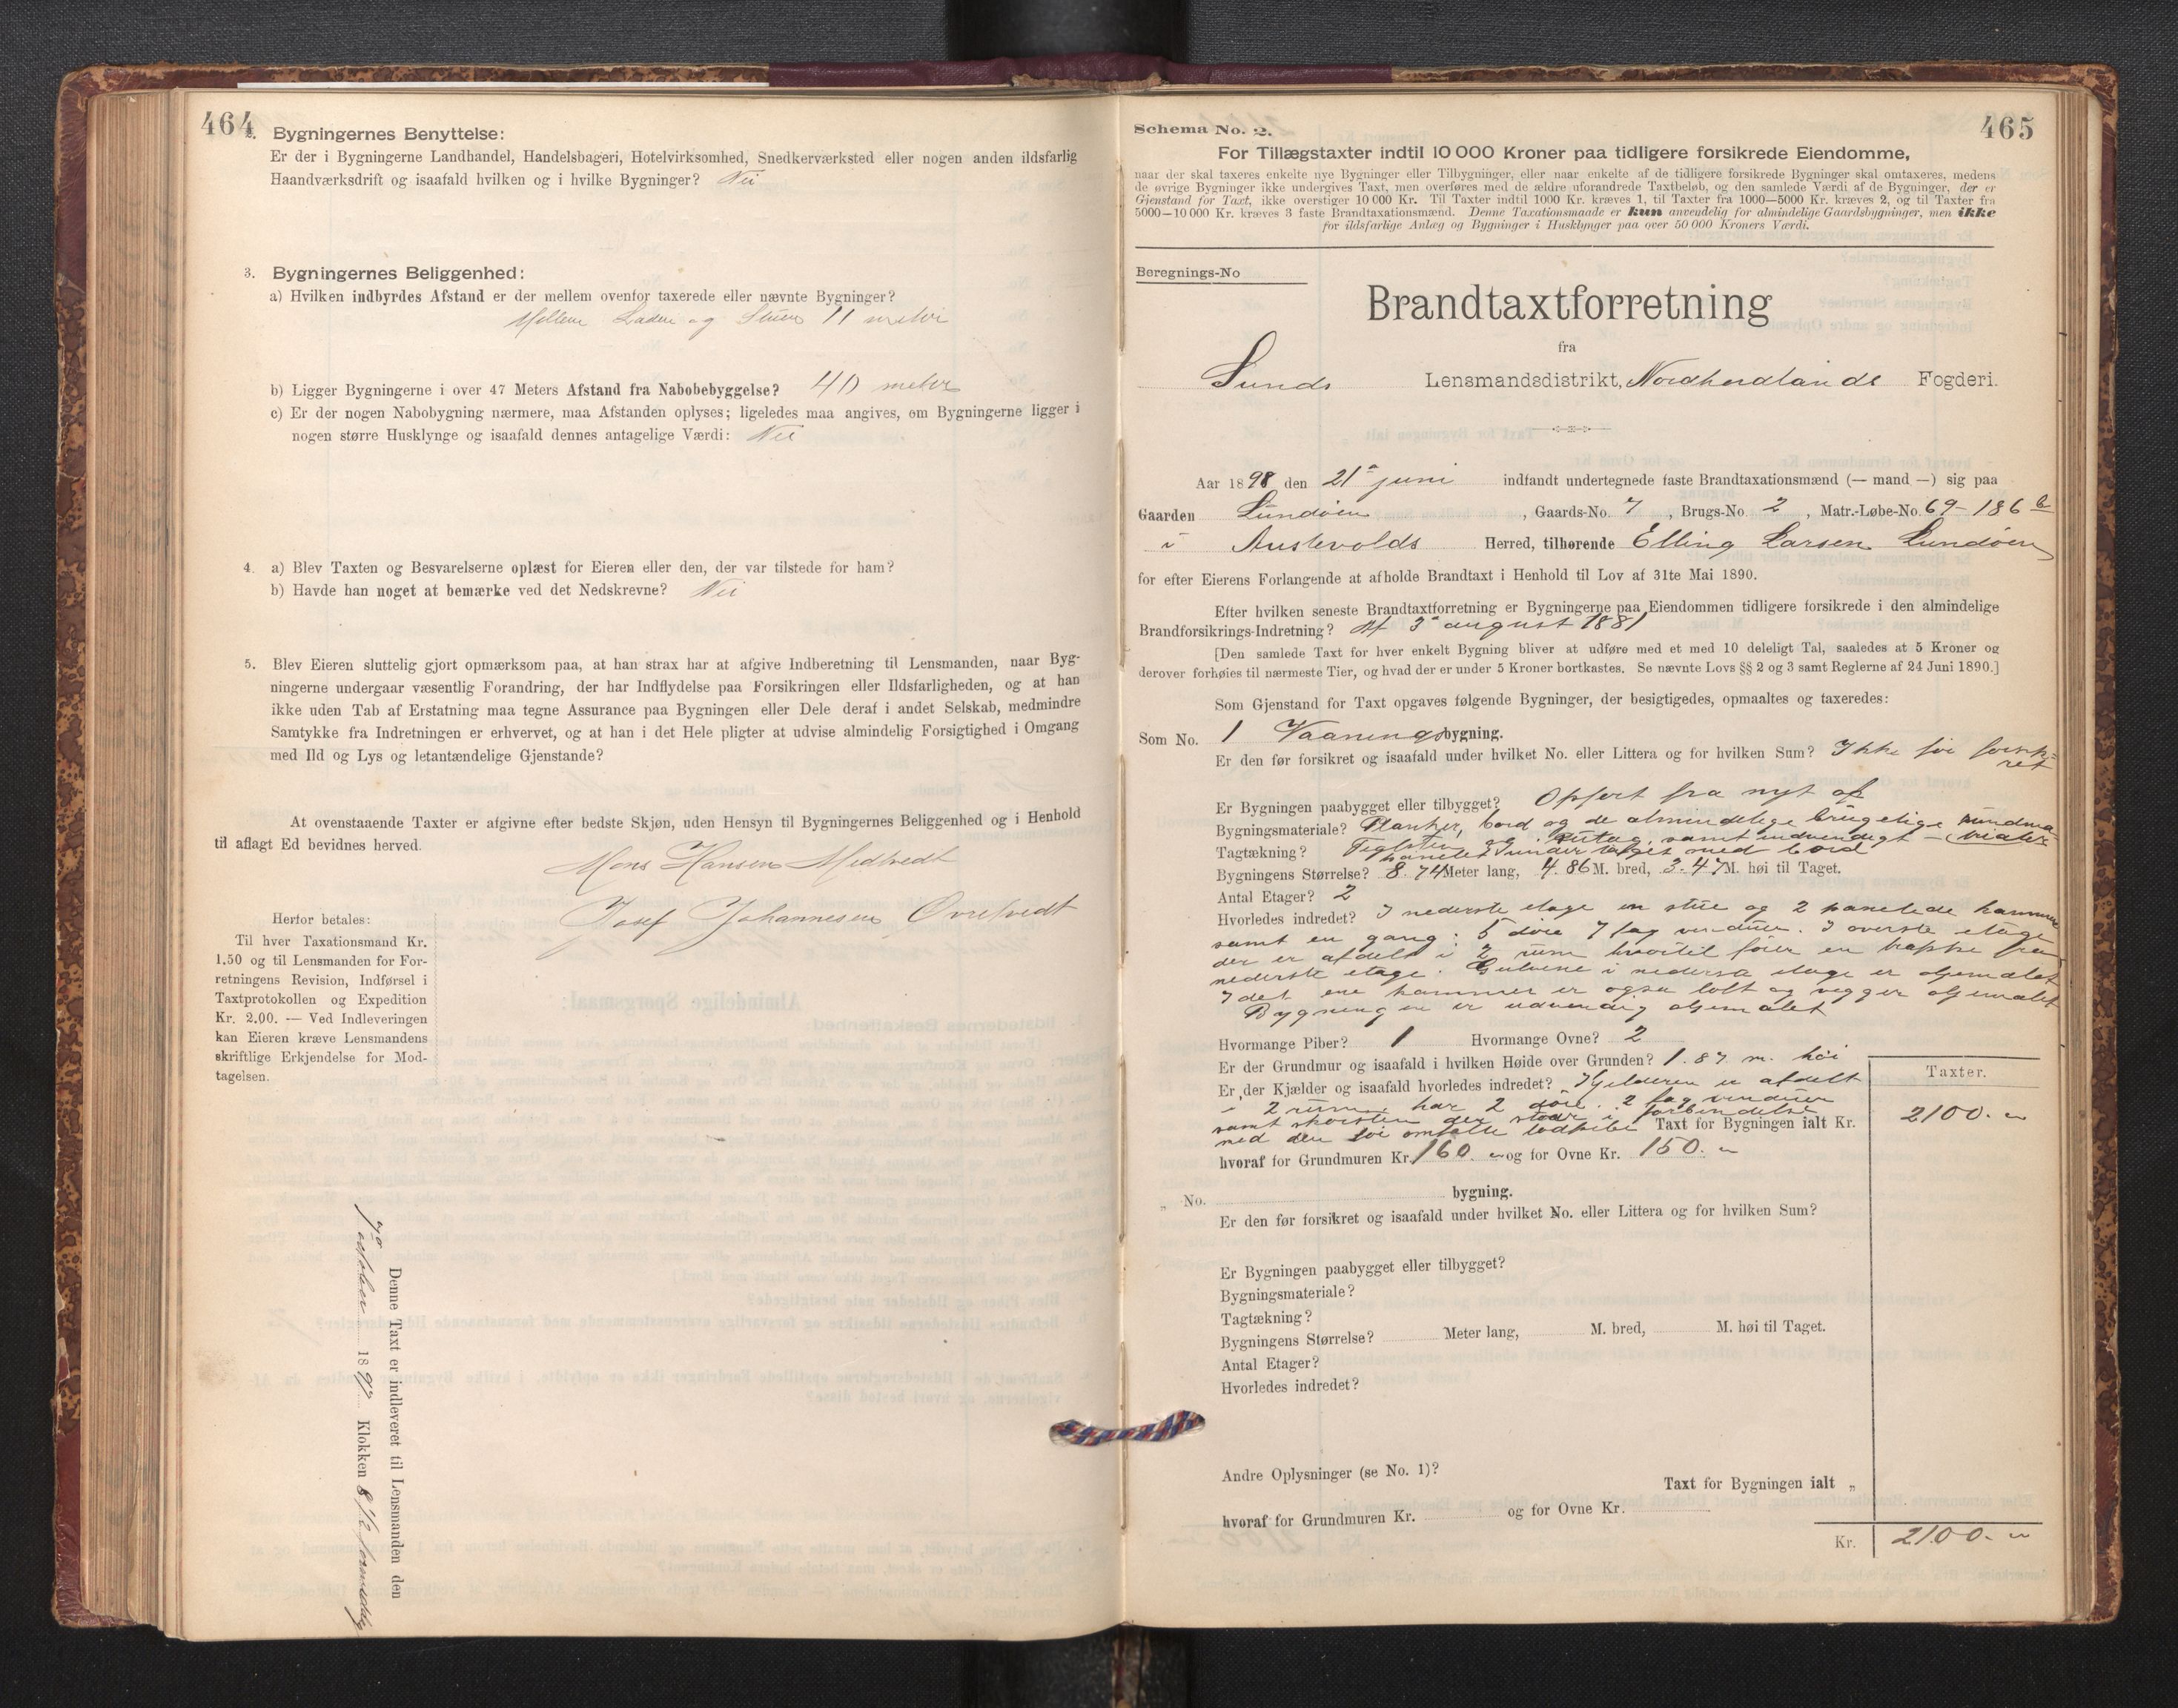 464
2. Bygningernes Benyttelse:
Er der i Bygningerne Landhandel, Handelsbageri, Hotelvirksomhed, Snedkerværksted eller nogen anden ildsfarlig
Haandværksdrift og isaafald hvilken og i hvilke Bygninger? Nei
3. Bygningernes Beliggenhed:
a) Hvilken indbyrdes Afstand er der mellem ovenfor taxerede eller nævnte Bygninger?
Mellem Laden og Stuen 11 meter
b) Ligger Bygningerne i over 47 Meters Afstand fra Nabobebyggelse? 40 meter
c) Er der nogen Nabobygning nærmere, maa Afstanden oplyses; ligeledes maa angives, om Bygningerne ligger i
nogen større Husklynge og isaafald dennes antagelige Værdi: Nei
4. a) Blev Taxten og Besvarelserne oplæst for Eieren eller den, der var tilstede for ham?
b) Havde han noget at bemærke ved det Nedskrevne? Nei
5. Blev Eieren sluttelig gjort opmærksom paa, at han strax har at afgive Indberetning til Lensmanden, naar Byg-
ningerne undergaar væsentlig Forandring, der har Indflydelse paa Forsikringen eller Ildsfarligheden, og at han
ikke uden Tab af Erstatning maa tegne Assurance paa Bygningen eller Dele deraf i andet Selskab, medmindre
Samtykke fra Indretningen er erhvervet, og at han i det Hele pligter at udvise almindelig Forsigtighed i Omgang
med Ild og Lys og letantændelige Gjenstande?
At ovenstaaende Taxter er afgivne efter bedste Skjøn, uden Hensyn til Bygningernes Beliggenhed og i Henhold
til aflagt Ed bevidnes herved.
Mons Hansen Medtvedt
Josef Johannesen Øvretvedt
Herfor betales:
Til hver Taxationsmand Kr.
1.50 og til Lensmanden for For-
retningens Revision, Indførsel i
Taxtprotokollen og Expedition
Kr. 2.00. — Ved Indleveringen
kan Eieren kræve Lensmandens
skriftlige Erkjendelse for Mod-
tagelsen.
Denne Taxt er indleveret til Lensmanden den
7de oktober 1897 Klokken 8 1/2 formiddag
465
Schema No. 2.
For Tillægstaxter indtil 10 000 Kroner paa tidligere forsikrede Eiendomme,
naar der skal taxeres enkelte nye Bygninger eller Tilbygninger, eller naar enkelte af de tidligere forsikrede Bygninger skal omtaxeres, medens
de øvrige Bygninger ikke undergives Taxt, men overføres med de ældre uforandrede Taxtbeløb, og den samlede Værdi af de Bygninger, der er
Gjenstand for Taxt, ikke overstiger 10 000 Kr. Til Taxter indtil 1000 Kr. kræves 1, til Taxter fra 1000—5000 Kr. kræves 2, og til Taxter fra
5000—10 000 Kr. kræves 3 faste Brandtaxationsmænd. Denne Taxationsmaade er kun anvendelig for almindelige Gaardsbygninger, men ikke
for ildsfarlige Anlæg og Bygninger i Husklynger paa over 50 000 Kroners Værdi.
Beregnings-No
Brandtaxtforretning
fra
Sunds Lensmandsdistrikt, Nordhordlands Fogderi.
Aar 1898 den 21de juni indfandt undertegnede faste Brandtaxationsmænd (— mand —) sig paa
Gaarden Lundøen, Gaards-No. 7, Brugs-No. 2, Matr.-Løbe-No. 69-186 b
i Austevolds Herred, tilhørende Elling Larsen Lundøen
for efter Eierens Forlangende at afholde Brandtaxt i Henhold til Lov af 31te Mai 1890.
Efter hvilken seneste Brandtaxtforretning er Bygningerne paa Eiendommen tidligere forsikrede i den almindelige
Brandforsikrings-Indretning? Af 3de august 1881
[Den samlede Taxt for hver enkelt Bygning bliver at udføre med et med 10 deleligt Tal, saaledes at 5 Kroner og
derover forhøies til nærmeste Tier, og hvad der er under 5 Kroner bortkastes. Se nævnte Lovs §§ 2 og 3 samt Reglerne af 24 Juni 1890.]
Som Gjenstand for Taxt opgaves følgende Bygninger, der besigtigedes, opmaaltes og taxeredes:
Som No. 1 Vaaningsbygning.
Er den før forsikret og isaafald under hvilket No. eller Littera og for hvilken Sum? Ikke før forsik-
ret
Er Bygningen paabygget eller tilbygget? Opført fra nyt af
Bygningsmateriale? Planker, bord og de almindelige brugelige rundma-
Tagtækning? Teglsten og samt indvendigt terialer
panelet under taget med bord
Bygningens Størrelse? 8.74 Meter lang, 4.86 M. bred, 3.47 M. høi til Taget.
Antal Etager? 2
Hvorledes indredet? I nederste etage en stue og 2 panelede kammer
samt en gang; 5 døre 7 fag vinduer. I øverste etage
der er afdelt i 2 rum hvortil fører en trappe fra
nederste etage. Gulvene i nederste etage er oljemalet
I det ene kammer er ogsaa loft og vegger oljemalet
Bygningen er udvendig oljemalet
Hvormange Piber? 1 Hvormange Ovne? 2
Er der Grundmur og isaafald i hvilken Høide over Grunden? 1.87 m. høi
Er der Kjælder og isaafald hvorledes indredet? Kjelderen er afdelt
i 2 rum har 2 døre. 2 fag vinduer
samt skorsten der staar i forbindelse
med den før omtalte Taxt for Bygningen ialt Kr.
Taxter.
2100. "
hvoraf for Grundmuren Kr. 160. " og for Ovne Kr. 150. "
" No. bygning.
Er den før forsikret og isaafald under hvilket No. eller Littera og for hvilken Sum?
Er Bygningen paabygget eller tilbygget?
Bygningsmateriale?
Tagtækning?
Bygningens Størrelse? Meter lang, M. bred, M. høi til Taget.
Antal Etager?
Hvorledes indredet?
Andre Oplysninger (se No. 1)?
Taxt for Bygningen ialt "
hvoraf for Grundmuren Kr. og for Ovne Kr.
Kr. 2100. "